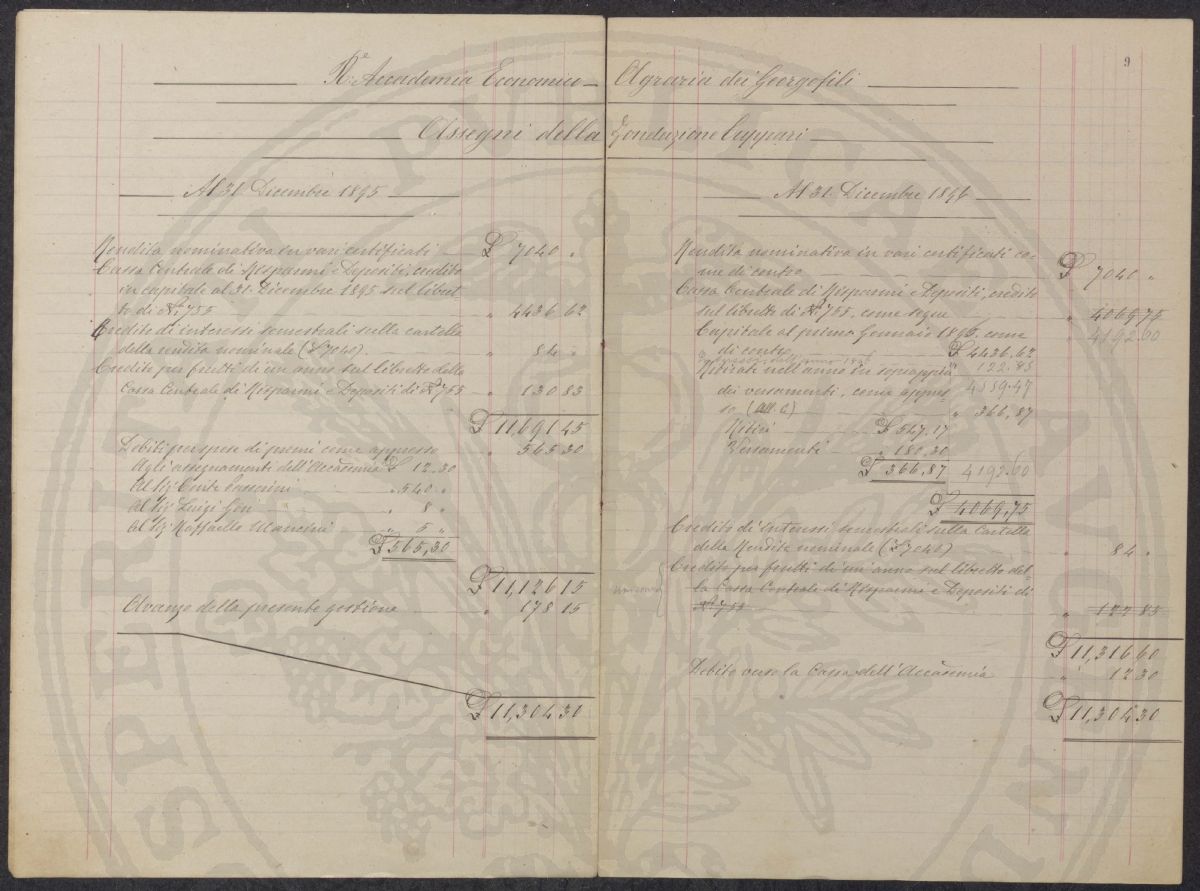 9
R.e Accademia Economico-Agraria dei Georgofili
Assegni della Fondazione Cuppari
Al 31. Dicembre 1895
Rendita nominativa in vari certificati £ 7040 "
Cassa Centrale di Risparmi e Depositi, credito
in capitale al 31. Dicembre 1895 sul libret-
to di No. 755 " 4436 62
Credito di interessi semestrali sulla cartella
della rendita nominale (£ 7040) " 84 "
Credito per frutti di un anno sul libretto della
Cassa Centrale di Risparmi e Depositi di No. 755 " 130 83
£ 11,691 45
Debiti per spese di premi come appresso " 565 30
Agli assegnamenti dell'Accademia £ 12.30
Al Sig. Conte Passerini " 540 "
Al Sig. Luigi " 8 "
Al Sig. Raffaello Mancini " 5 "
£ 565,30
£ 11,126 15
Avanzo della presente gestione " 178 15
£ 11,304 30
Al 31. Dicembre 1896
Rendita nominativa in vari certificati co-
me di contro £ 7040 "
Cassa Centrale di Risparmi e Depositi, credito
sul libretto di No. 755, come segue " 4069 75
4192.60
Capitale al primo Gennaio 1896, come
di contro £ 4436,62
dell'anno 1896 " 122.85
4559.47
Ritirati nell'anno in soprappiù
dei versamenti, come appres-
so (All. C) " 366,87
Ritiri £ 547,17
Versamenti " 180.30
£ 366,87 4192.60
£ 4069,75
Credito di interessi semestrali sulla Cartella
della Rendita nominale (£ 7040) " 84 "
Credito per frutti di un anno sul libretto del-
la Cassa Centrale di Risparmi e Depositi di
No. 755 " 122 85
£ 11,316 60
Debito verso la Cassa dell'Accademia " 12 30
£ 11,304 30